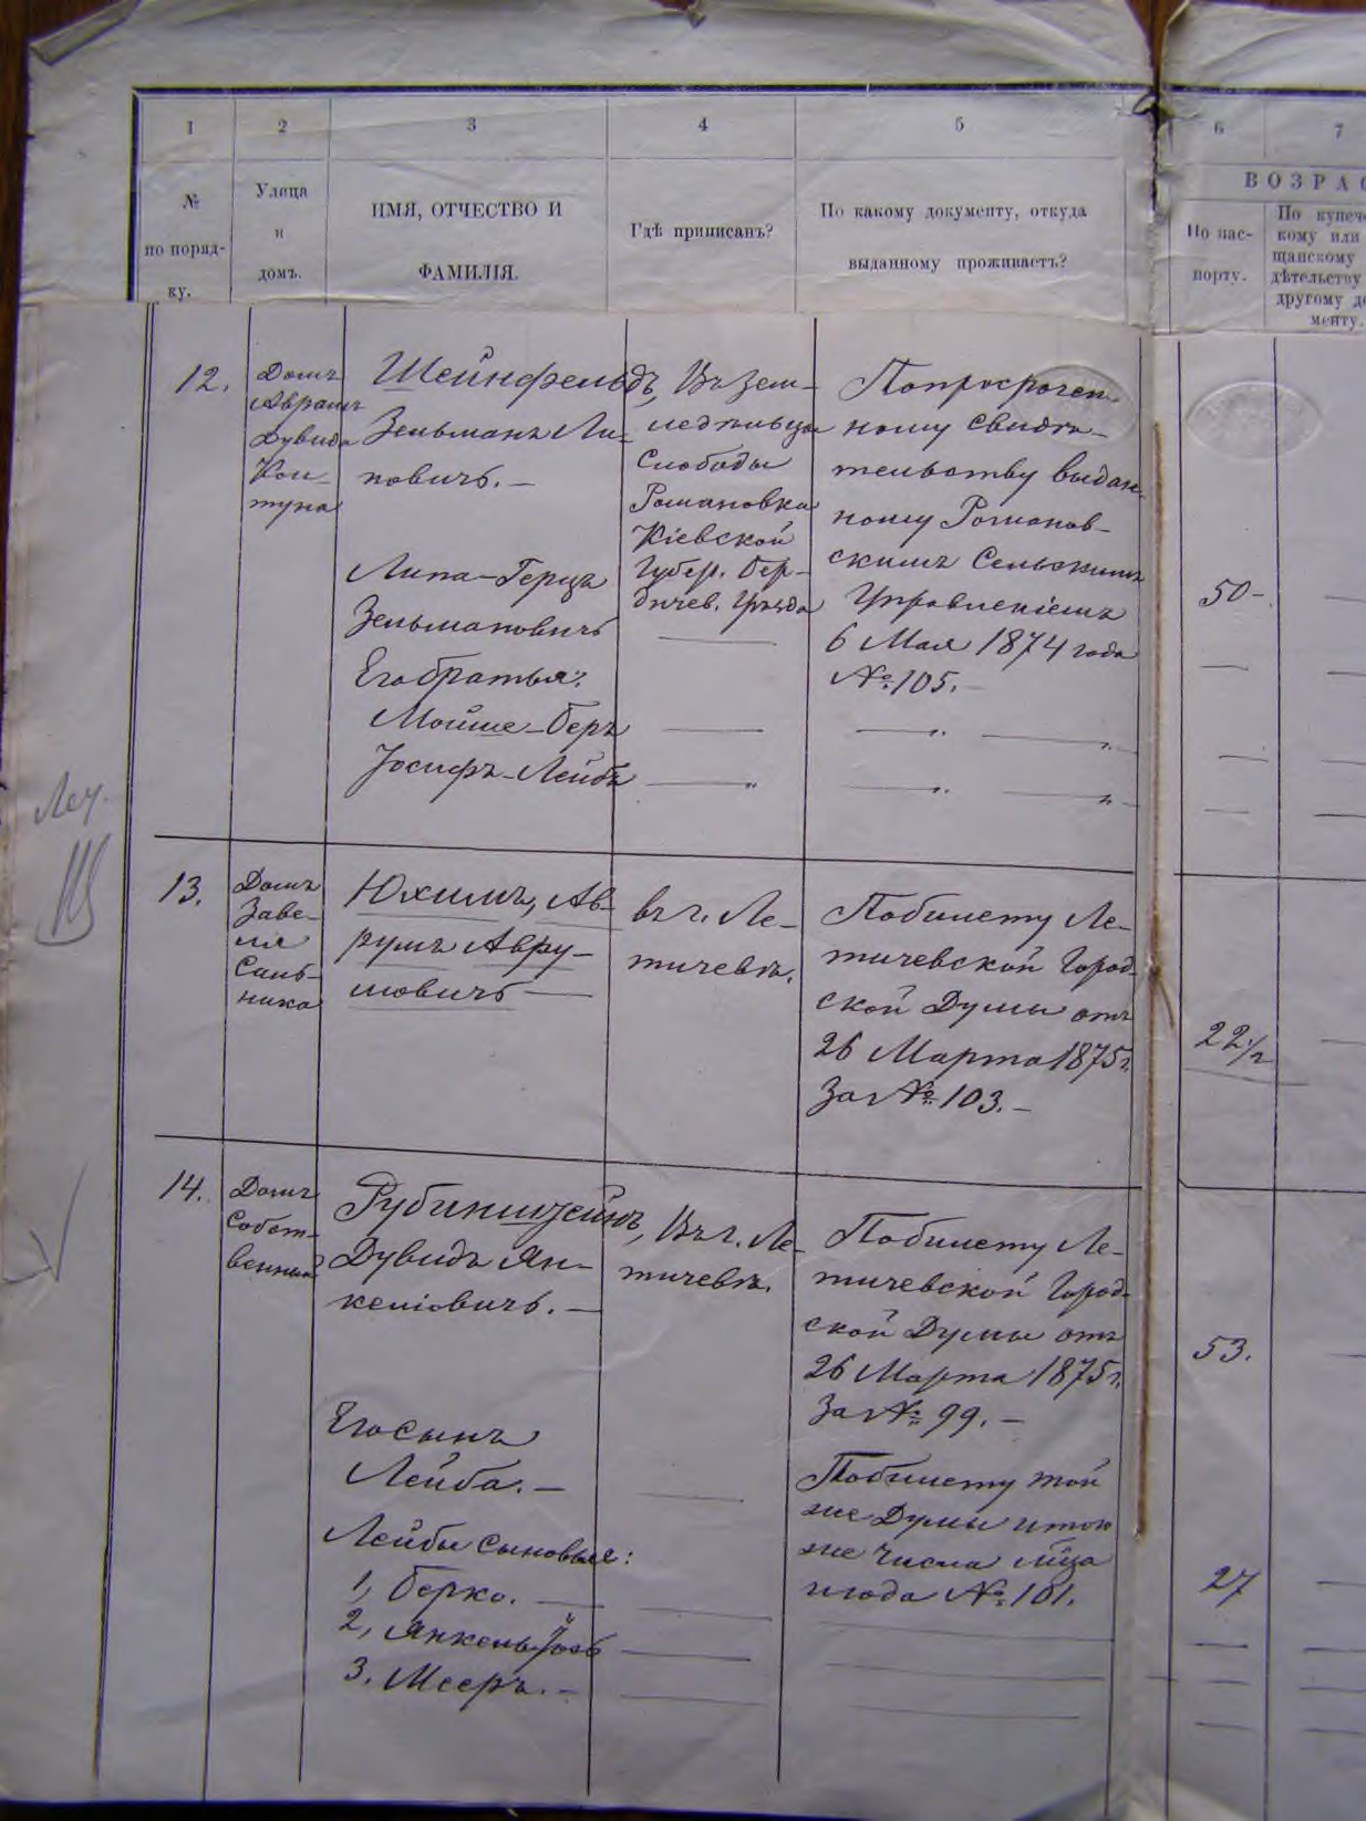 1 2 3 4 5 6 7
№ по поряд- ку.
Улица и домъ.
ИМЯ, ОТЧЕСТВО И ФАМИЛІЯ.
Гдѣ приписанъ?
По какому документу, откуда
выданному проживаетъ?
ВОЗРАС
По пас-
порту.
По купеч
кому или
щанскому
дѣтельству
другому до
менту.
12.
Домъ
Аврамъ
Дувида
Кол-
туна
Шейнфельдъ,
Зельманъ Ли-
повичъ. —
Липа-Герцъ
Зельмановичъ
Его братья:
Мойше-Беръ
Іосифъ-Лейбъ
Въ зем-
ледѣльцы
Слободы
Романовка
Кіевской
Губер. Бер-
дичев. Уѣзда
По просрочен-
ному свидѣ-
тельству выдан-
ному Романов-
скимъ Сельскимъ
Управленіемъ
6 Мая 1874 года
№ 105. —
50 —
Леч.
13.
Домъ
Заве-
ля
Саль-
ника
Юхимъ, Ав-
румъ Авру-
мовичъ —
въ г. Ле-
тичевѣ.
По билету Ле-
тичевской Город-
ской Думы отъ
26 Марта 1875 г.
За № 103. —
22 1/2
14.
Домъ
Собст-
венный
Рубинштейнъ,
Дувидъ Ян-
келіовичъ. —
Въ г. Ле-
тичевѣ.
По билету Ле-
тичевской Город-
ской Думы отъ
26 Марта 1875 г.
За № 99. —
53.
Его сынъ
Лейба. —
По билету той
же Думы и того
же числа м-ца
и года № 101.
27
Лейбы сыновья:
1, Берко. —
2, Янкель-Йось
3. Мееръ. —